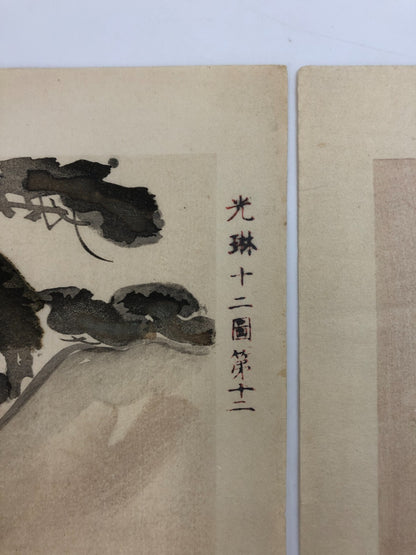 光琳十二圖第十二